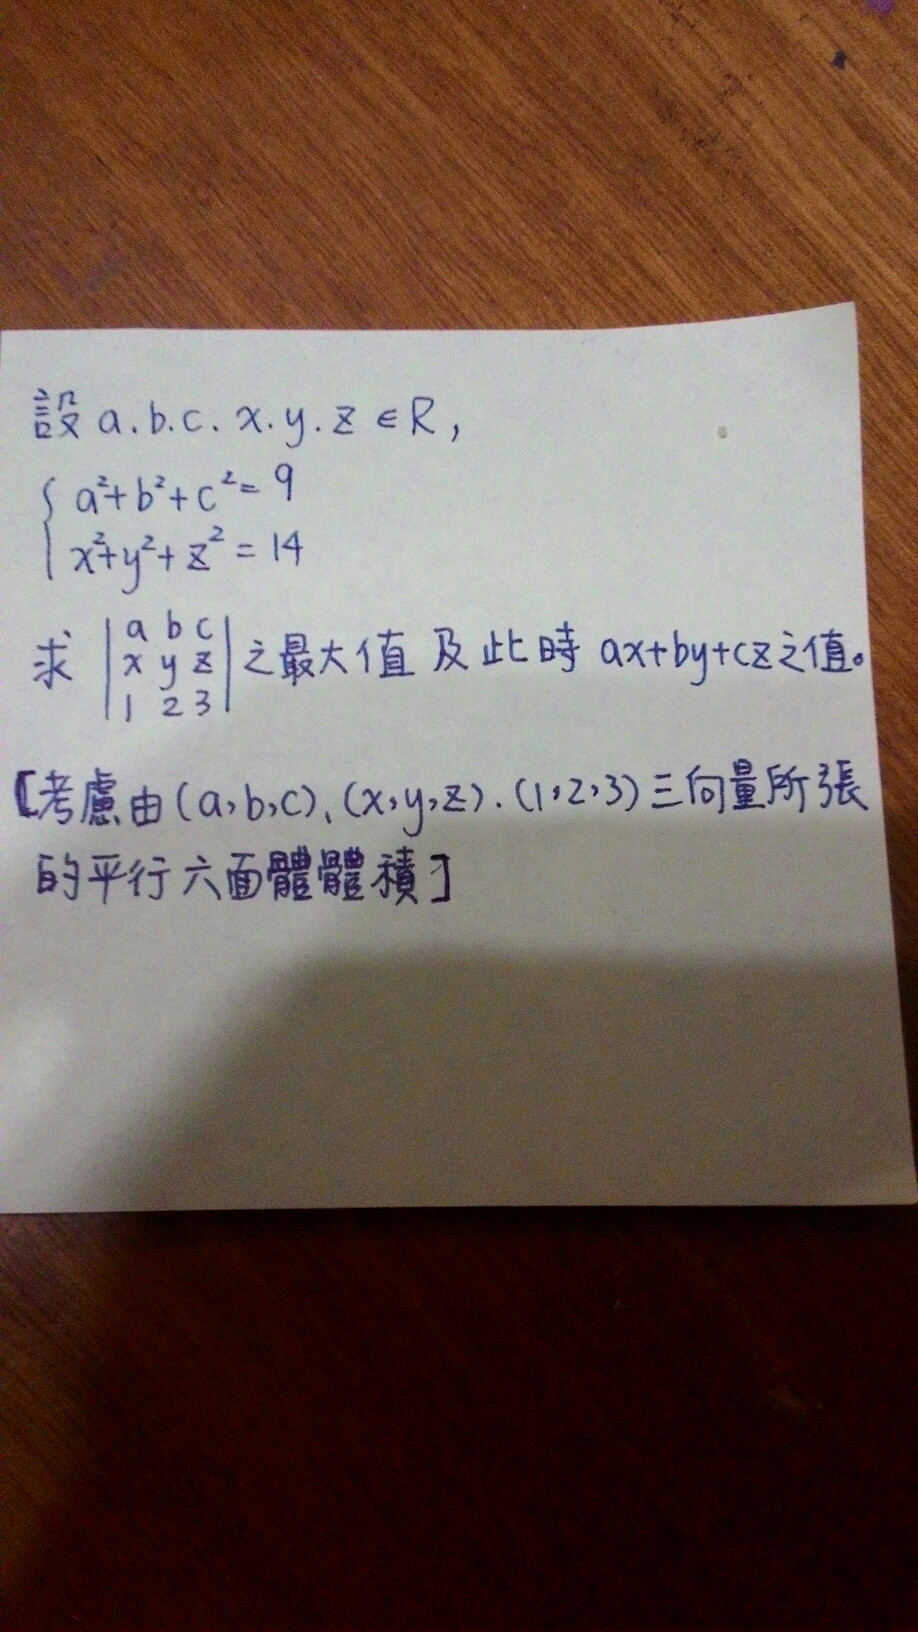 設 a.b.c. x.y.z ∈R,
a²+b²+c²=9
x²+y²+z²=14
求 |a b c| 之最大值 及此時 ax+by+cz之值。
|x y z|
|1 2 3|
【考慮由(a,b,c)、(x,y,z).(1,2,3)三向量所張
的平行六面體體積】